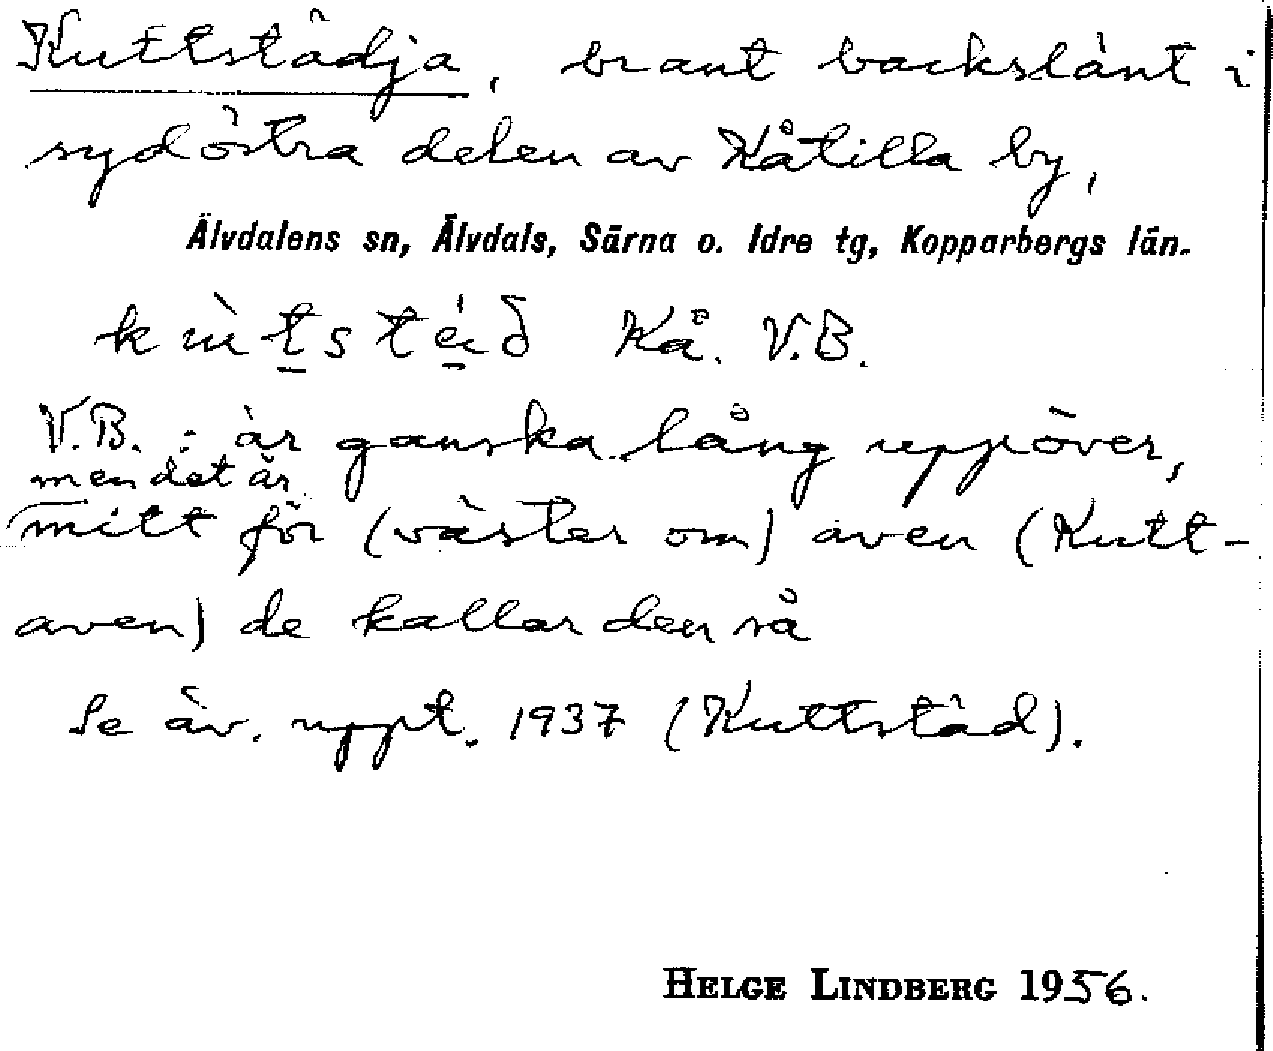 Kuttstädja, brant backslänt i
sydöstra delen av Kåtilla by,
Älvdalens sn, Älvdals, Särna o. Idre tg, Kopparbergs län.
Kå. V.B.
V.B. : är ganska lång uppöver,
men det är
mitt för (väster om) aven (Kutt-
aven) de kallar den så
Se äv. uppt. 1937 (Kuttstäd).
HELGE LINDBERG 1956.